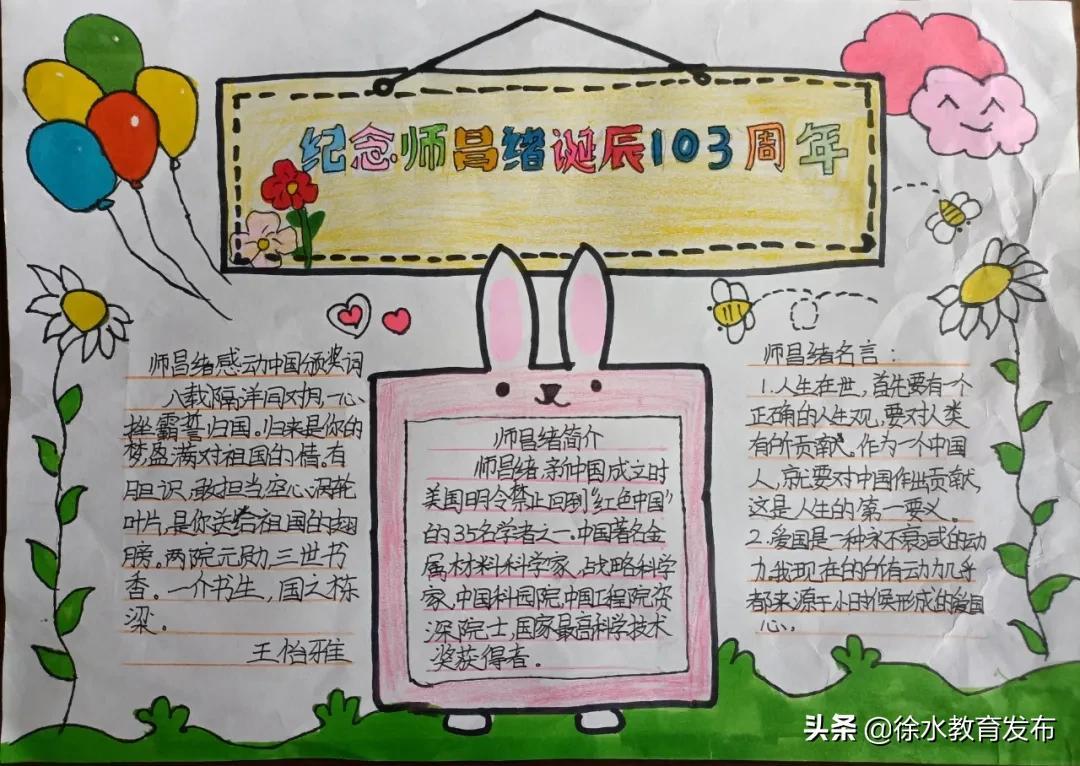 纪念师昌绪诞辰103周年
师昌绪感动中国颁奖词
八载隔洋同对月,一心
挫霸誓归国。归来是你的
梦,盈满对祖国的情。有
胆识,敢担当,空心涡轮
叶片,是你送给祖国的翅
膀。两院元勋,三世书
香。一个书生,国之栋
梁。
王怡雅
师昌绪简介
师昌绪,新中国成立时
美国明令禁止回到“红色中国”
的35名学者之一.中国著名金
属材料科学家,战略科学
家,中国科园院,中国工程院资
深院士,国家最高科学技术
奖获得者。
师昌绪名言:
1.人生在世,首先要有一个
正确的人生观,要对人类
有所贡献。作为一个中国
人,就要对中国作出贡献,
这是人生的第一要义。
2.爱国是一种永不衰减的动
力,我现在的所有动力几乎
都来源于小时候形成的爱国
心。
头条 @徐水教育发布